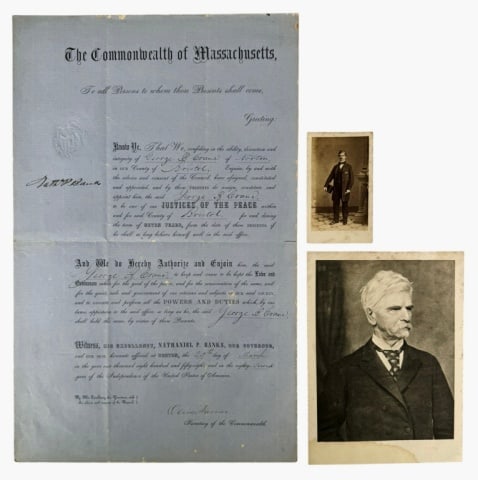 The Commonwealth of Massachusetts,
To all Persons to whom these Presents shall come,
Greeting:
Know Ye, That We, confiding in the ability, discretion and
integrity of George F. Crane of
in our County of Bristol, Esquire, by and with
the advice and consent of the Council have assigned, constituted
and appointed, and by these presents do assign, constitute and
appoint him, the said George F. Crane
to be one of our JUSTICES OF THE PEACE within
and for said County of Bristol for and during
the term of SEVEN YEARS, from the date of these presents if
he shall so long behave himself well in the said office.
Nath P. Banks
And We do Hereby Authorize and Enjoin him, the said
George F. Crane to keep and cause to be kept the Laws and
Ordinances made for the good of the peace, and for the conservation of the same, and
for the quiet, rule and government of our citizens and subjects, in our said County
and to execute and perform all the POWERS AND DUTIES which by our
laws, appertain to the said office so long as he, the said George F. Crane
shall hold the same by virtue of these Presents.
Witness, HIS EXCELLENCY, NATHANIEL P. BANKS, OUR GOVERNOR,
and our seal hereunto affixed at BOSTON, the day of March
in the year one thousand eight hundred and fifty-eight and in the eighty-second
year of the Independence of the United States of America.
By His Excellency the Governor, with
the advice and consent of the Council.
Oliver Warner
Secretary of the Commonwealth.